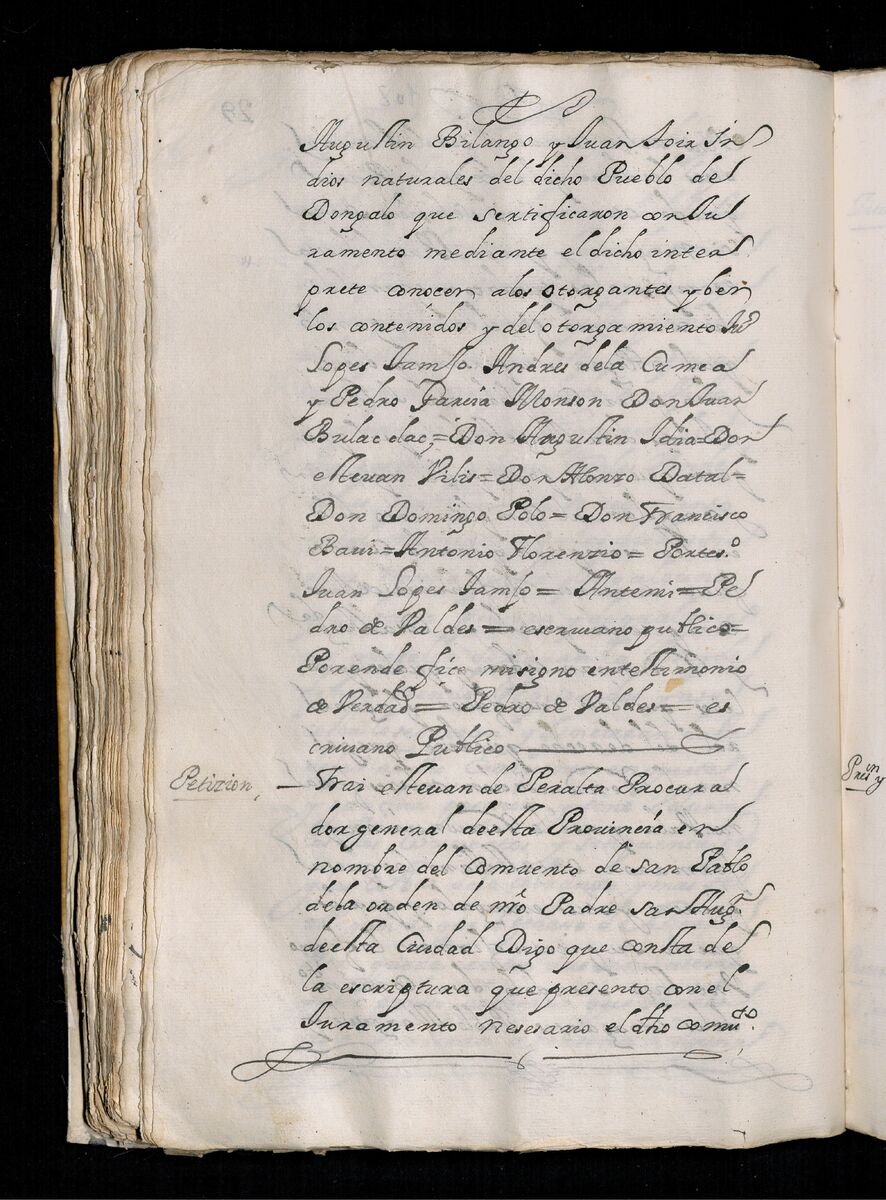 Augustin Bilango y Juan Soix Jn
dios naturales del dicho Pueblo de
Dongalo que sertificaron con Ju
ramento mediante el dicho inter
prete conocer alos otorgantes y ber
los contenidos y del otorgamiento Juº
Lopes Jamso Andres dela Cumea
y Pedro Garcia Monson Don Juan
Bulacclac,= Don Augustin Idia= Don
estevan Pilis= Don Alonzo Datal=
Don Domingo Polo= Don Francisco
Baui= Antonio Florenzio= Portes.º
Juan Lopes Jamso= Antemi= Pe
dro de Valdes= escriuano publico=
Porende fice misigno intestimonio
de Verdad= Pedro de Valdes= es
criuano Publico
Petizion,
Frai estevan de Peralta Procura
dor general deesta Provincia en
nombre del Comuento de san Pablo
dela orden de nrõ Padre san Augn.
deesta Ciudad Digo que consta de
la escriptura que presento con el
Juramento nesesario el dho comuto.
Presn y